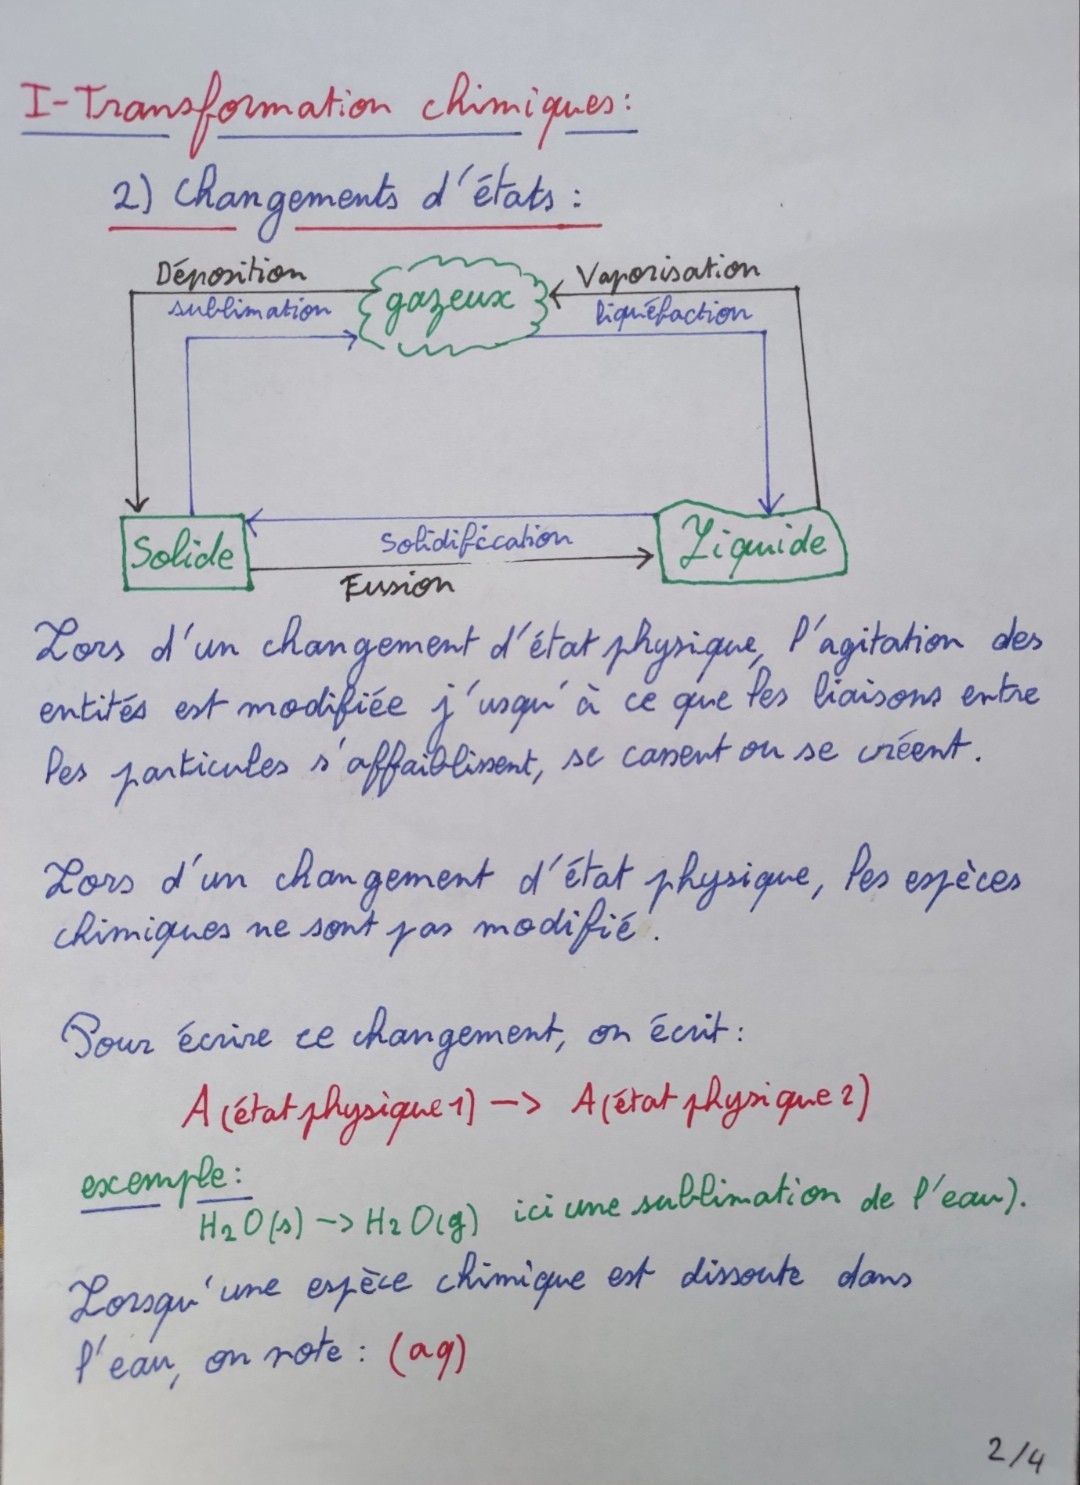 I-Transformation chimiques:
2) Changements d'états :
Déposition
sublimation
gazeux
Vaporisation
liquéfaction
Solide
Solidification
Fusion
Liquide
Lors d'un changement d'état physique, l'agitation des
entités est modifiée j'usqu'à ce que les liaisons entre
les particules s'affaiblissent, se cassent ou se créent.
Lors d'un changement d'état physique, les espèces
chimiques ne sont pas modifié.
Pour écrire ce changement, on écrit :
A (état physique 1) -> A (état physique 2)
exemple:
H₂O(s) -> H₂O(g) ici une sublimation de l'eau).
Lorsqu'une espèce chimique est dissoute dans
l'eau, on note : (aq)
2/4